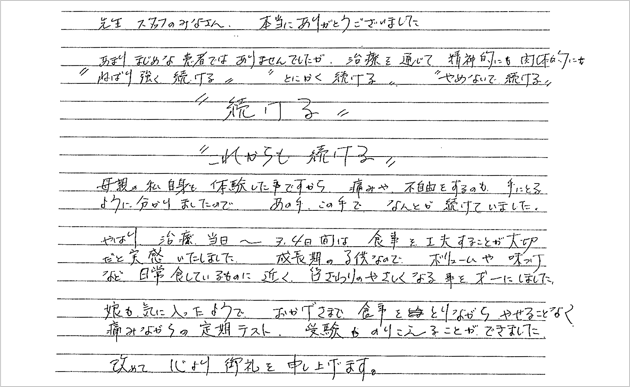 先生 スタッフのみなさん、 本当にありがとうございました
あまり まじめな 患者では ありませんでしたが、治療を 通じて 精神的にも 肉体的にも
"ねばり強く 続ける" "とにかく 続ける" "やめないで 続ける"
"続ける"
"これからも 続ける"
母親の私自身も 体験した事ですから 痛みや、不自由をするのも 手にとる
ように 分かりましたので あの手、この手で なんとか 続けていました。
やはり 治療、当日 〜 3,4日間は 食事を工夫することが大切
だと実感いたしました。 成長期の子供なので ボリュームや 味つけ
など 日常食しているものに 近く、 ざわりのやさしくなる 事を オ一にしました。
娘も気に入ったようで おかげさまで 食事をとりながら やせることなく
痛みながらの 定期テスト、 受験も のりこえることが できました
改めて 心より 御礼を 申し上げます。